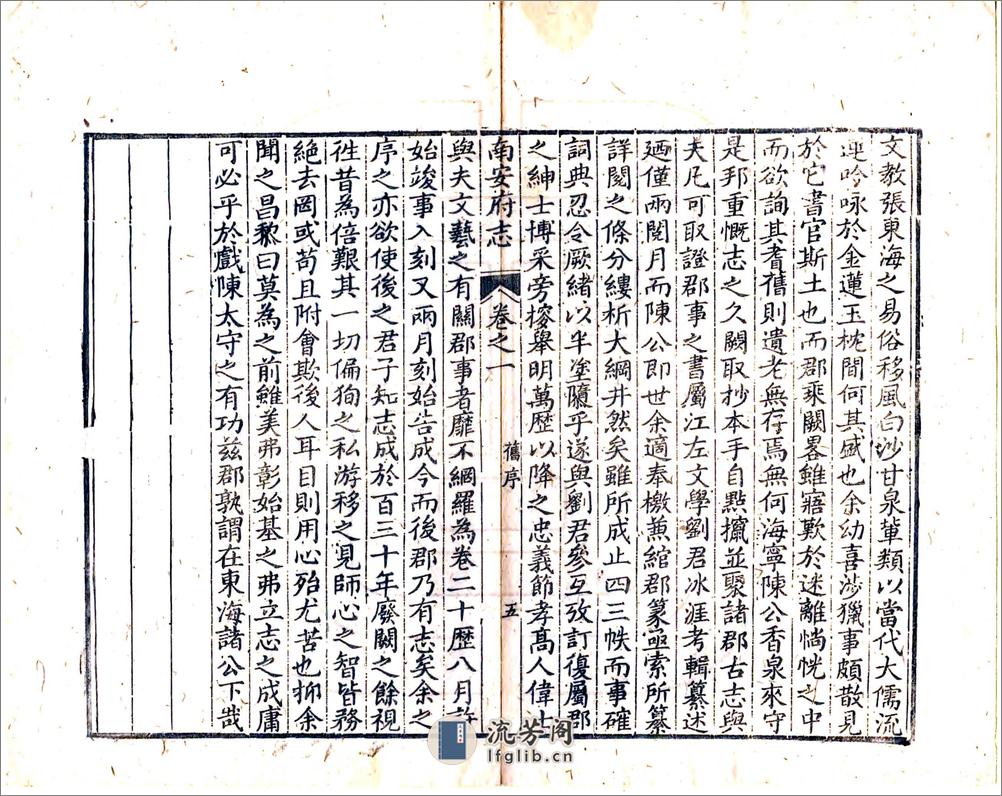 文教張東海之易俗移風白沙甘泉軰類以當代大儒流
連吟咏於金蓮玉枕間何其盛也余幼喜涉獵事頗散見
於它書官斯土也而郡乘闕畧雖寤歎於迷離惝恍之中
而欲詢其耆舊則遺老無存焉無何海寧陳公香泉來守
是邦重慨志之久闕取抄本手自點攛並聚諸郡古志與
夫凡可取證郡事之書屬江左文學劉君冰涯考輯纂述
廼僅兩閱月而陳公即世余適奉檄兼綰郡篆亟索所纂
詳閱之條分縷析大綱井然矣雖所成止四三帙而事確
詞典忍令厥緒以半塗隳乎遂與劉君參互攷訂復屬郡
之紳士博采旁搜舉明萬歷以降之忠義節孝高人偉士
南安府志
卷之一
舊序
五
與夫文藝之有關郡事者靡不網羅為卷二十歷八月許
始竣事入刻又兩月刻始告成今而後郡乃有志矣余之
序之亦欲使後之君子知志成於百三十年廢闕之餘視
徃昔為倍艱其一切偏狥之私游移之見師心之智皆務
絶去罔或苟且附會欺後人耳目則用心殆尤苦也抑余
聞之昌黎曰莫為之前雖美弗彰始基之弗立志之成庸
可必乎於戲陳太守之有功兹郡孰謂在東海諸公下哉
流芳阁
lfglib.cn